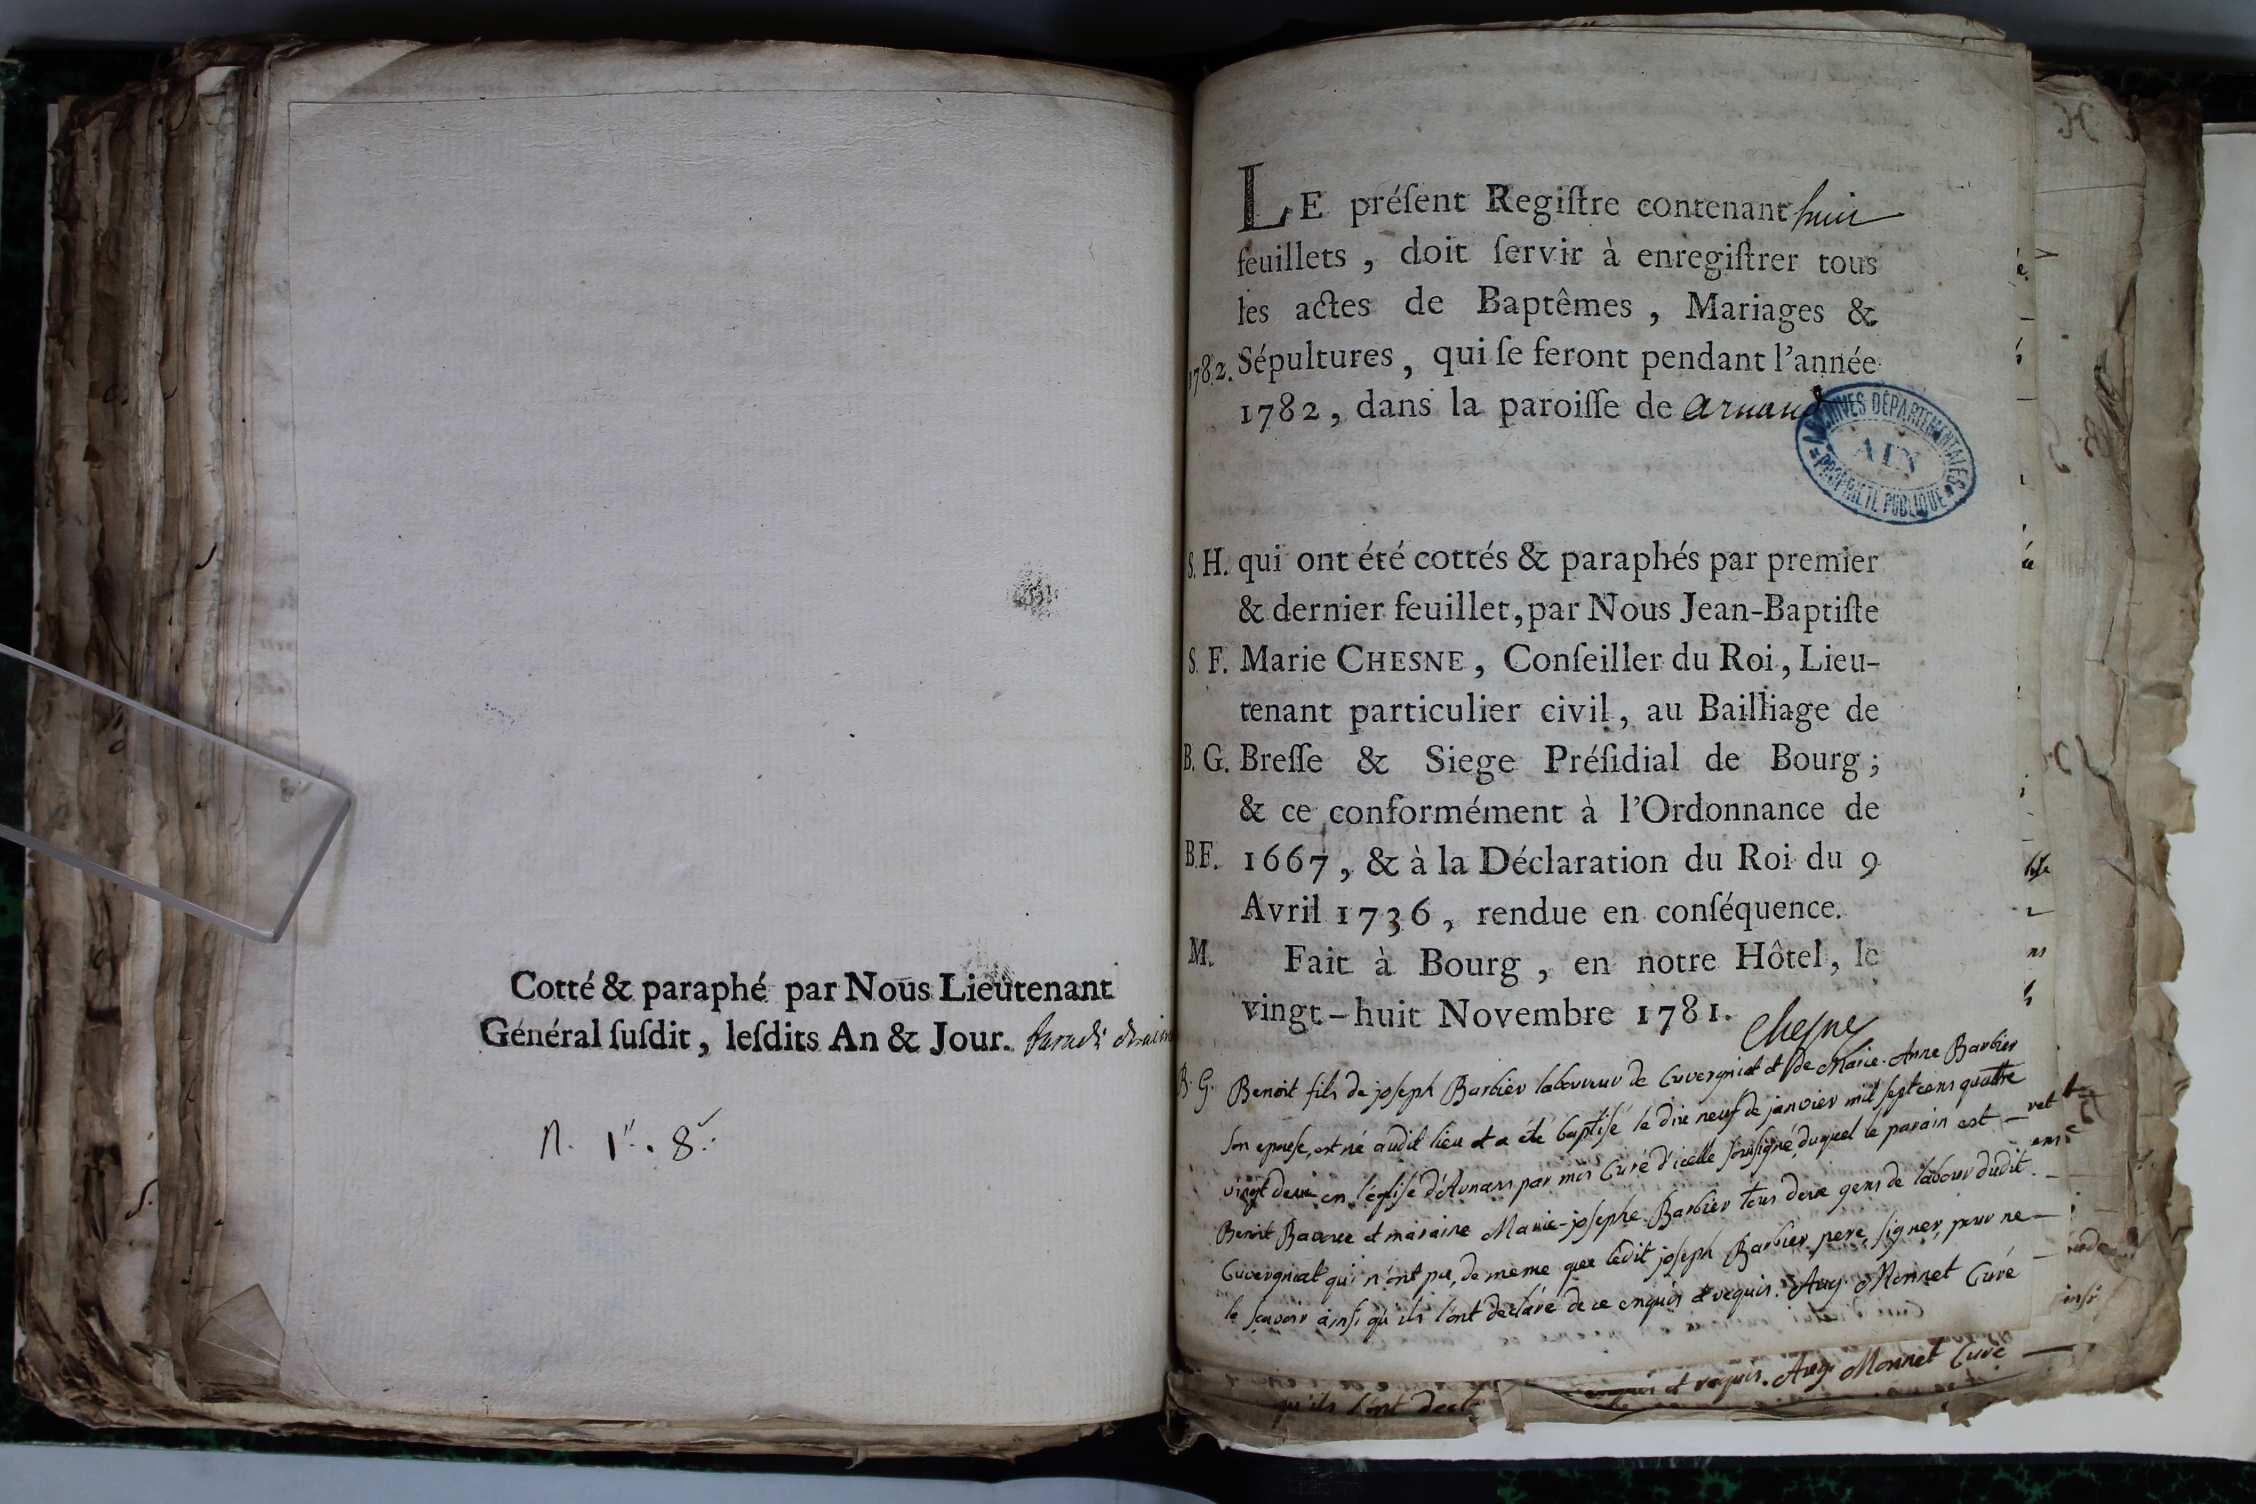 Cotté & paraphé par Nous Lieutenant
Général ſuſdit, leſdits An & Jour.
n. 1r. 8.
LE préſent Regiſtre contenant huit
feuillets, doit ſervir à enregiſtrer tous
les actes de Baptêmes, Mariages &
1782. Sépultures, qui ſe feront pendant l'année
1782, dans la paroiſſe de arnans
ARCHIVES DÉPARTEMENTALES
AIN
PROPRIETE PUBLIQUE
S. H. qui ont été cottés & paraphés par premier
& dernier feuillet, par Nous Jean-Baptiſte
S. F. Marie CHESNE, Conſeiller du Roi, Lieu-
tenant particulier civil, au Bailliage de
B. G. Breſſe & Siege Préſidial de Bourg;
& ce conformément à l'Ordonnance de
B.F. 1667, & à la Déclaration du Roi du 9
Avril 1736, rendue en conſéquence.
M. Fait à Bourg, en notre Hôtel, le
vingt-huit Novembre 1781.
Cheſne
B. G. Benoit fils de joſeph Barbier laboureur de Cuvergniat et de Marie-Anne Barbier
ſon epouſe, est né audit lieu et a été baptiſé le dix neuf de janvier mil ſept cens quattre
vingt deux en l'égliſe d'Arnans par moi Curé d'icelle ſouſigné, duquel le parain est
Benoit et maraine Marie-joſephe Barbier tous deux gens de labour dudit
Cuvergniat qui n'ont pu, de meme que ledit joſeph Barbier pere, ſigner, pour ne
le ſcavoir ainſi qu'ils l'ont declaré de ce enquis et requis. Aug. Monnet Curé
enquis et requis. Aug. Monnet Curé
qu'ils l'ont decl